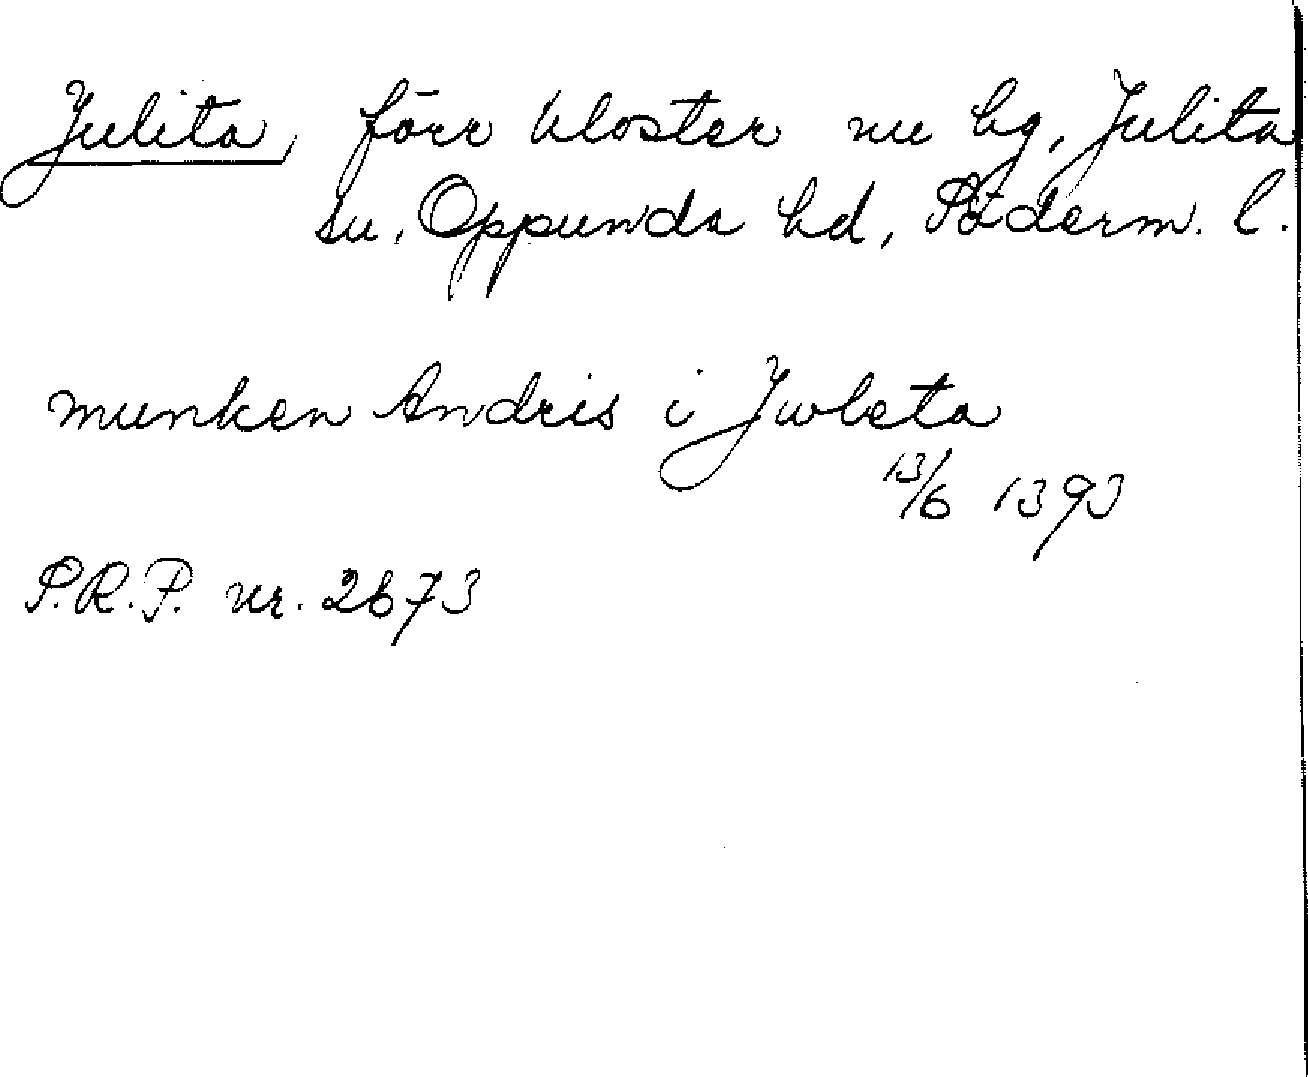 Julita, förr kloster nu hg, Julita
sn, Oppunda hd, Söderm. l.
munken Andris i Jwleta
13/6 1393
S.R.P. nr. 2673